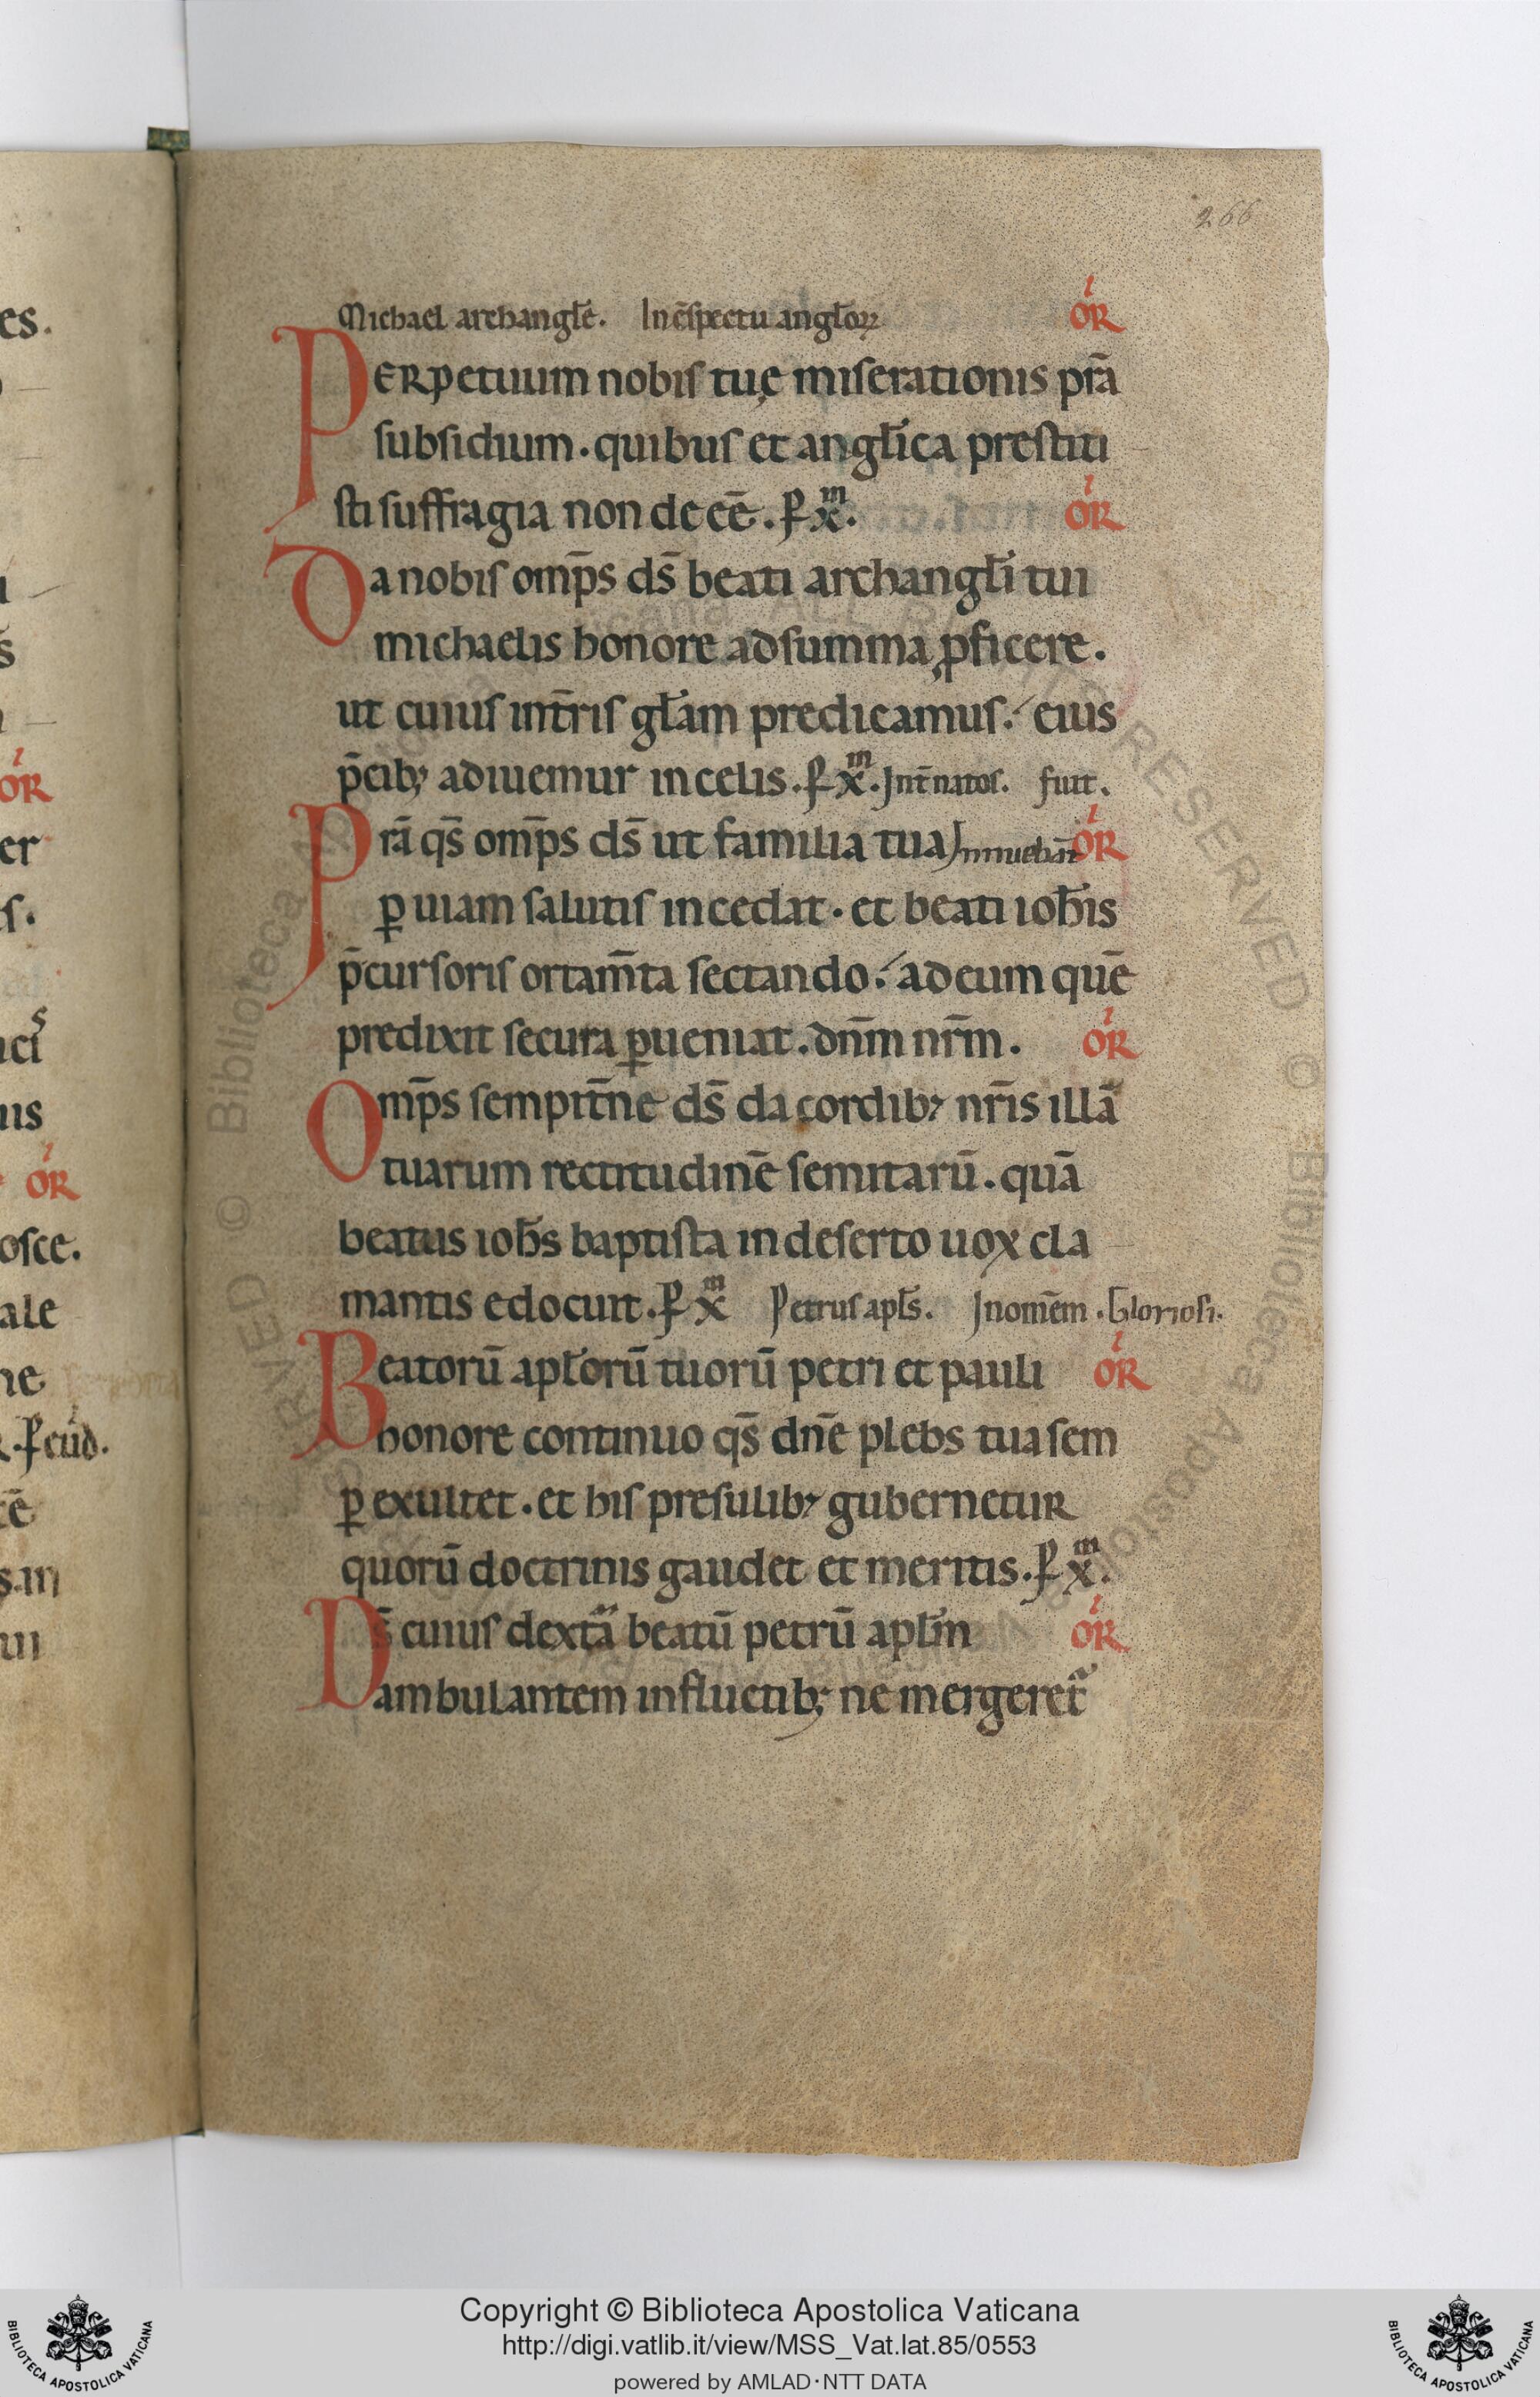 es.
266
Michael archangle̅. In c̅spectu anglo̅ꝝ OR̅
PERpetuum nobis tuę miserationis pr̅a
subsidium. quibus et angl̅ica prestiti
sti suffragia non de ee̅. P xm̅. OR̅
Da nobis omp̅s ds̅ beati archangl̅i tui
michaelis honore ad summa ꝓficere.
ut cuius int̅ris gl̅am predicamus. eius
p̅cib; adiuuemur in celis. P xm̅. Int̅ natos. fuit.
Pra̅ qs̅ omp̅s ds̅ ut familia tua Innueba̅t OR̅
ꝑ uiam salutis incedat. et beati ioh̅is
p̅cursoris ortam̅ta sectando. ad eum que̅
predixit secura ꝑueniat. dn̅m nr̅m. OR̅
Omp̅s sempit̅ne ds̅ da cordib; nr̅is illa̅
tuarum rectitudine̅ semitaru̅. qua̅
beatus ioh̅s baptista in deserto uox cla
mantis edocuit. P xm̅ Petrus apl̅s. In om̅em. Gloriosi.
Beatoru̅ apl̅oru̅ tuoru̅ petri et pauli OR̅
honore continuo qs̅ dn̅e plebs tua sem
ꝑ exultet. et his presulib; gubernetuR
quoru̅ doctrinis gaudet et meritis. P xm̅.
Ds̅ cuius dexta̅ beatu̅ petru̅ apl̅m OR̅
ambulantem in fluctib; ne mergeret̅
Copyright © Biblioteca Apostolica Vaticana
http://digi.vatlib.it/view/MSS_Vat.lat.85/0553
powered by AMLAD·NTT DATA
BIBLIOTECA APOSTOLICA VATICANA
BIBLIOTECA APOSTOLICA VATICANA